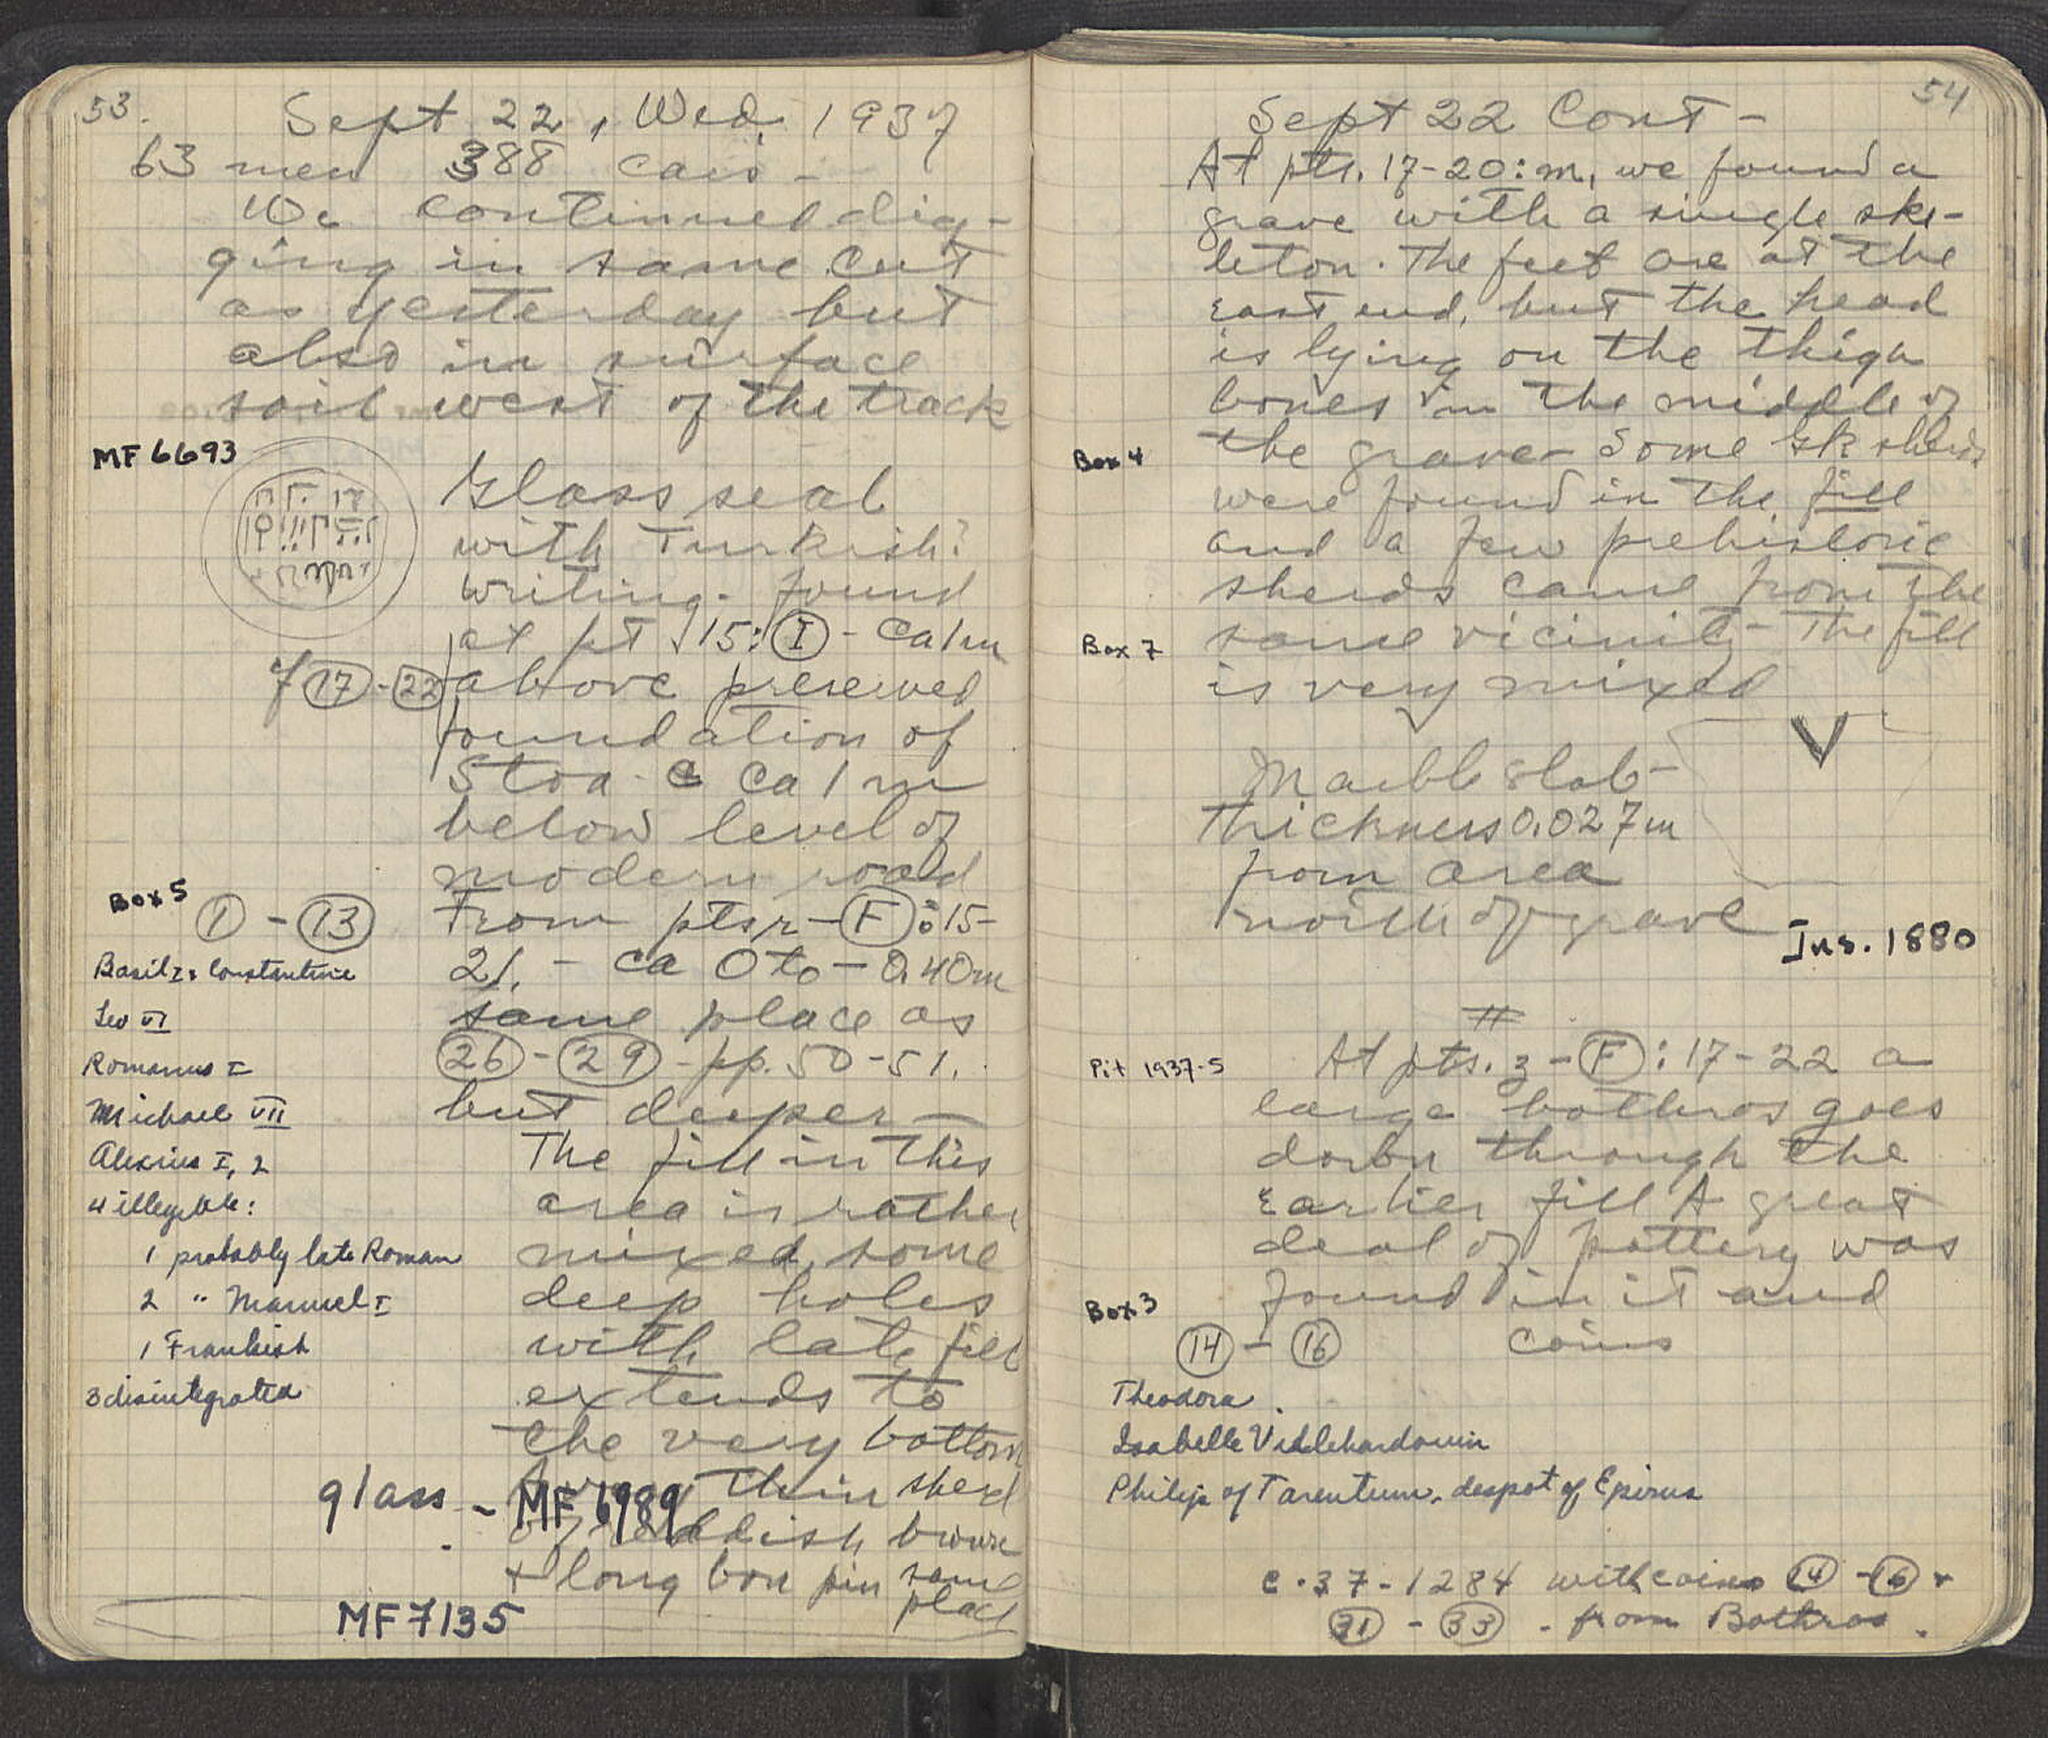 53.
Sept 22, Wed, 1937
63 men 388 cars -
We continued dig-
ging in same cut
as yesterday but
also in surface
soil west of the track
MF 6693
Glass seal
with Turkish?
writing. found
at pt 15: I - ca 1 m
17 - 22 above preserved
foundation of
Stoa ca 1 m
below level of
modern road
Box 5
1 - 13 From pts r - F : 15 -
21. - ca 0 to - 0.40m
same place as
26 - 29 - pp. 50 - 51.
but deeper -
Basil I & Constantine
Leo VI
Romanus I
Michael VII
Alexius I, 2
4 illegible:
1 probably late Roman
2 " Manuel I
1 Frankish
3 disintegrated
The fill in this
area is rather
mixed, some
deep holes
with late fill
extends to
the very bottom
A very thin sherd
glass - MF 6989
of reddish brown
+ long bone pin same
place
MF 7135
54
Sept 22 Cont -
At pts. 17-20:m, we found a
grave with a single ske-
leton. The feet are at the
east end, but the head
is lying on the thigh
bones in the middle of
Box 4 the grave - Some Gk sherds
were found in the fill
and a few prehistoric
sherds came from the
Box 7 same vicinity - The fill
is very mixed
V
Marble slab -
thickness 0.027m
from area
north of grave
Ins. 1880
Pit 1937-5 At pts. z - F : 17-22 a
large bothros goes
down through the
earlier fill A great
deal of pottery was
Box 3 found in it and
14 - 16 coins
Theodora.
Isabelle Villehardouin
Philip of Tarentum, despot of Epirus
c. 37-1284 with coins 14 - 16 +
31 - 33 - from Bothros.